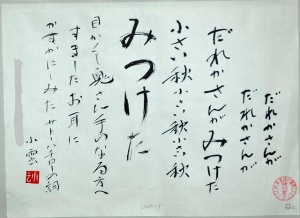 だれかさんが
だれかさんが
だれかさんが みつけた
小さい秋 小さい秋 小さい秋
みつけた
目かくし鬼さん手のなる方へ
すましたお耳に
かすかにしみた サトウハチローの詞
小雲